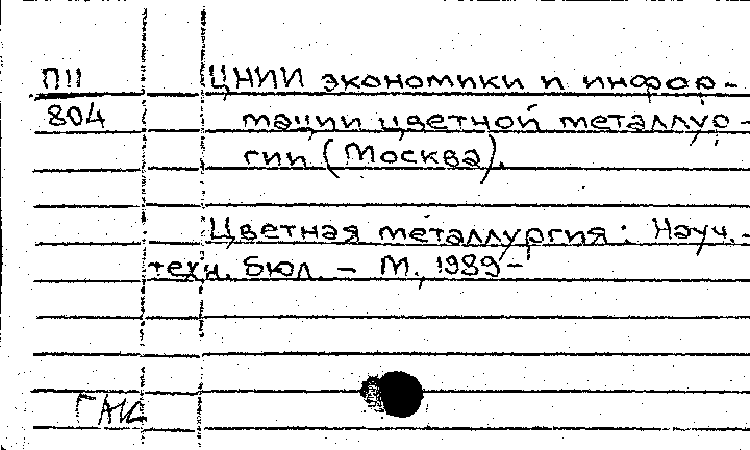 П11 ЦНИИ экономики и инфор-
804 мации цветной металлур-
гии (Москва).
Цветная металлургия: Науч.-
техн. бюл. – М., 1989–